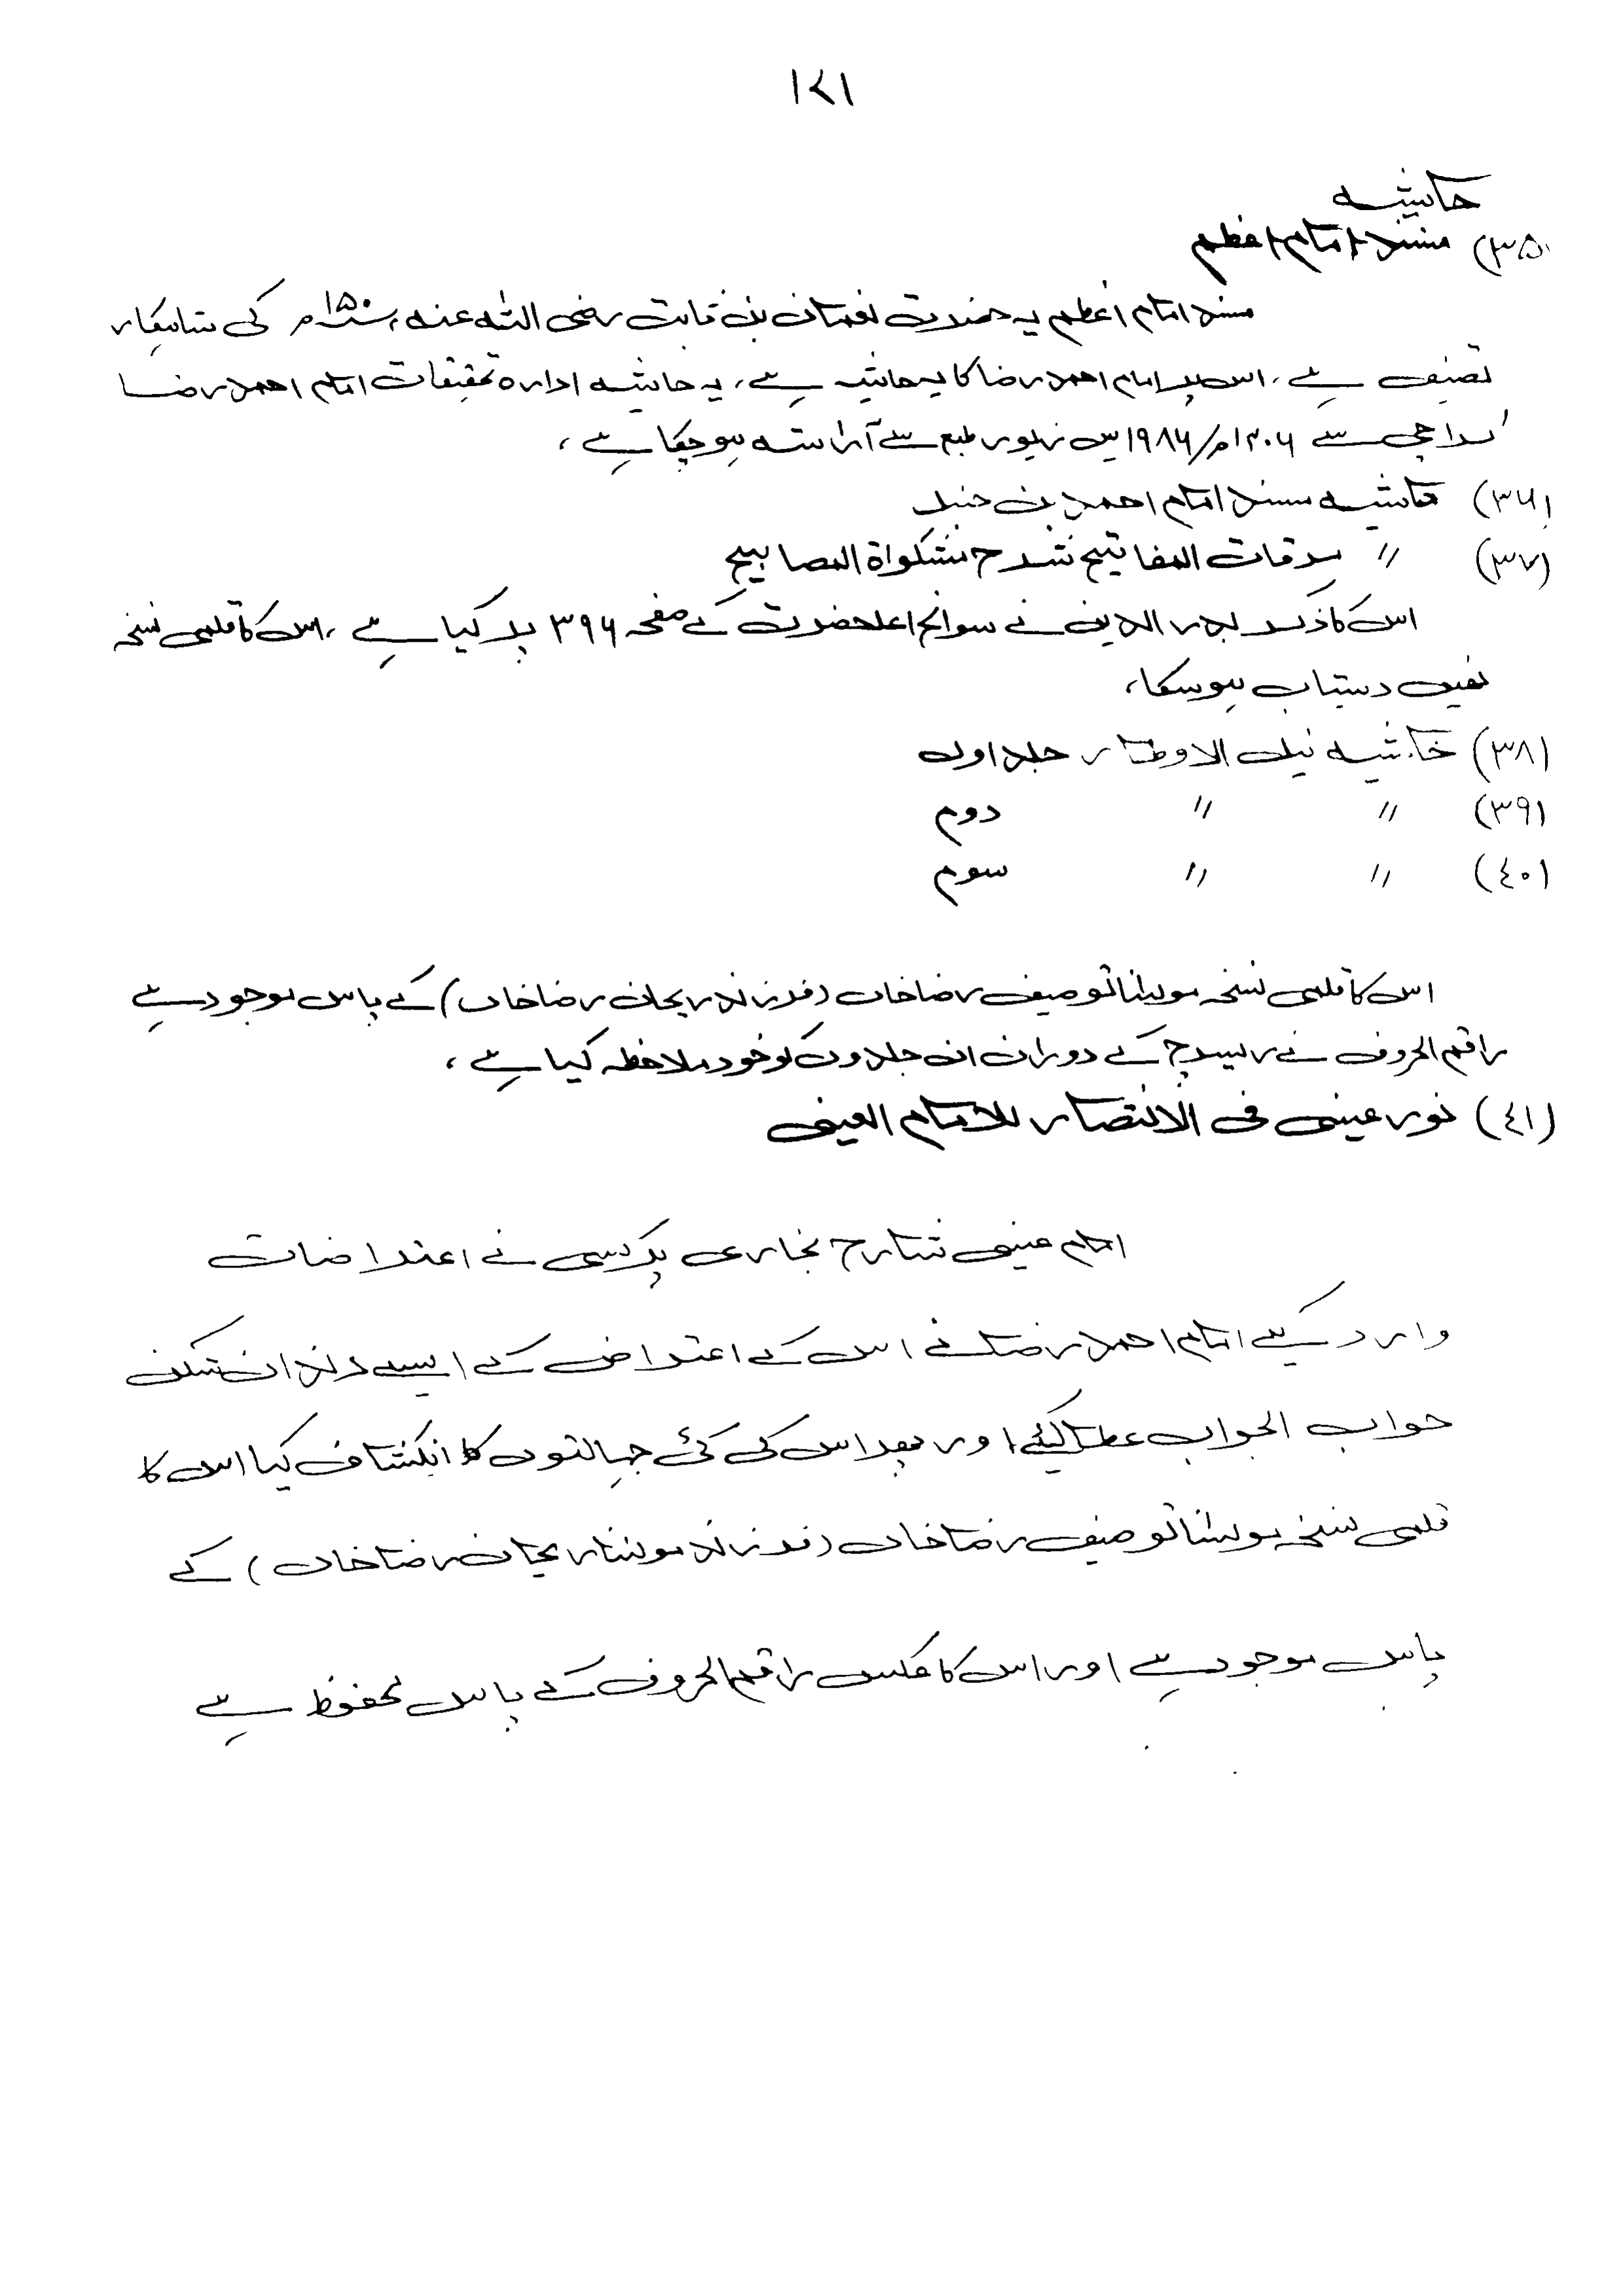 ١٤١
حاشیہ
(٣٥) مسند امام اعظم
مسند امام اعظم یہ حضرت نعمان بن ثابت رضی اللہ عنہ، سنہ ١٥٠ھ کی شاہکار
تصنیف ہے، اس پر امام احمد رضا کا یہ حاشیہ ہے، یہ حاشیہ ادارہ تحقیقات امام احمد رضا
کراچی سے ١٣٠٦ھ/١٩٨٦ میں زیور طبع سے آراستہ ہوچکا ہے،
(٣٦) حاشیہ مسند امام احمد بن حنبل
(٣٧) // مرقات المفاتیح شرح مشکواة المصابیح
اس کا ذکر بدر الدین نے سوانح اعلحضرت کے صفحہ ٣٩٦ پر کیا ہے، اس کا قلمی نسخہ
نہیں دستیاب ہوسکا،
(٣٨) حاشیہ نیل الاوطار جلد اول
(٣٩) // // دوم
(٤٠) // // سوم
اس کا قلمی نسخہ مولینا توصیف رضا خاں (فرزند ریحان رضا خاں) کے پاس موجود ہے
راقم الحروف نے ریسرچ کے دوران ان جلدوں کو خود ملاحظہ کیا ہے،
(٤١) نور عینی فی الانتصار للامام العینی
امام عینی شارح بخاری پر کسی نے اعتراضات
وارد کیے امام احمد رضا نے اس کے اعتراض کے ایسے دندان شکن
جواب الجواب عطا کیئے اور پھر اس کی کئ جہالتوں کا انکشاف کیا اس کا
قلمی نسخہ مولینا توصیف رضا خاں (فرزند مولینا ریحان رضا خاں) کے
پاس موجود ہے اور اس کا عکس راقم الحروف کے پاس محفوظ ہے